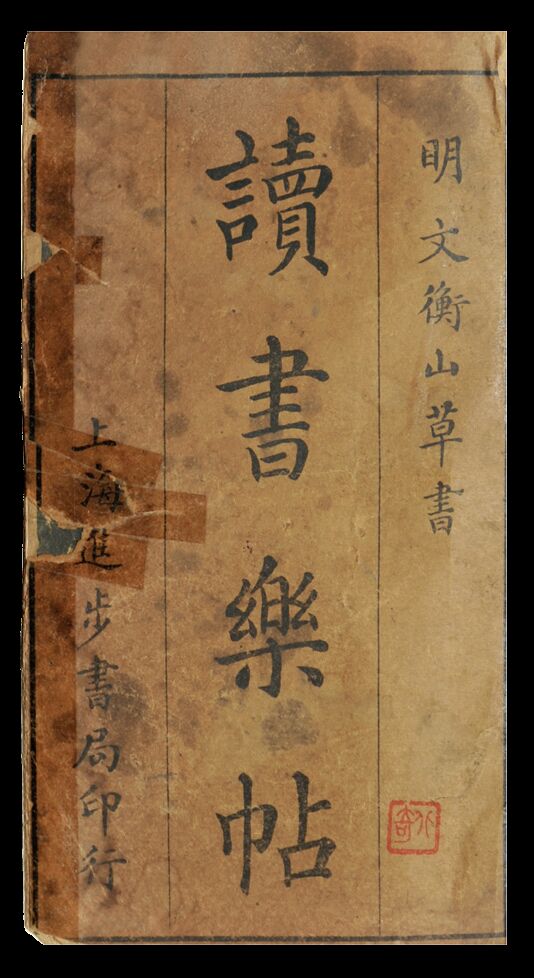 明文衡山草書
讀書樂帖
上海進步書局印行